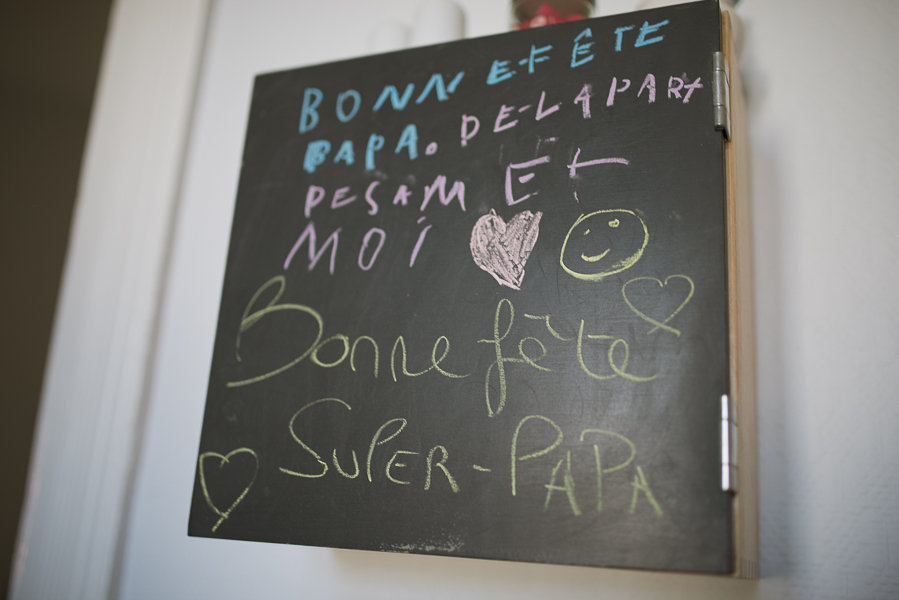 BONN EFÊTE
PAPA. DE LA PART
DE SAM ET
MOi
Bonne fête
SUPER-PAPA